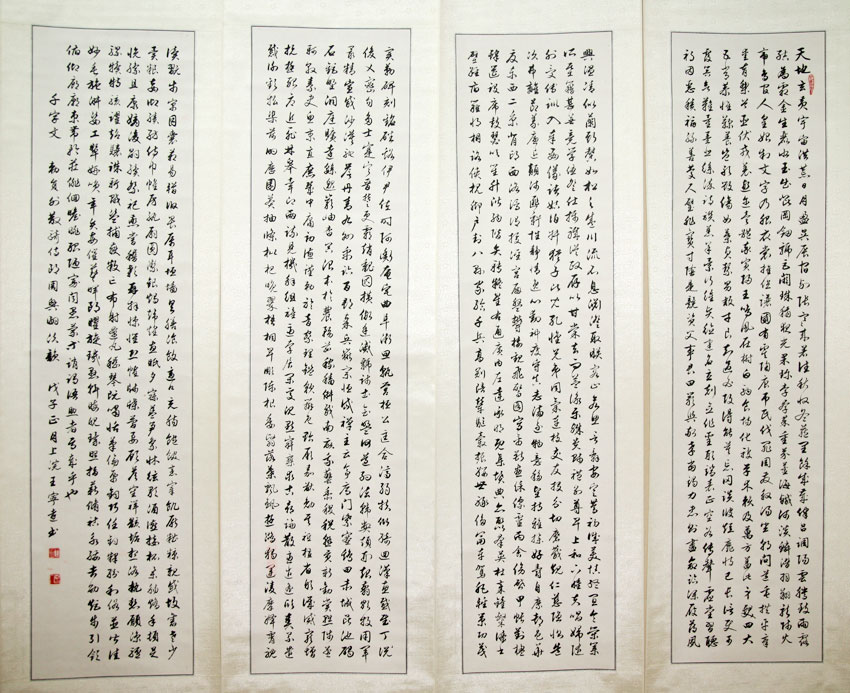 天地玄黄宇宙洪荒日月盈昃辰宿列张寒来暑往秋收冬藏闰余成岁律吕调阳云腾致雨露
结为霜金生丽水玉出昆冈剑号巨阙珠称夜光果珍李柰菜重芥姜海咸河淡鳞潜羽翔龙师火
帝鸟官人皇始制文字乃服衣裳推位让国有虞陶唐吊民伐罪周发殷汤坐朝问道垂拱平章
爱育黎首臣伏戎羌遐迩壹体率宾归王鸣凤在树白驹食场化被草木赖及万方盖此身发四大
五常恭惟鞠养岂敢毁伤女慕贞洁男效才良知过必改得能莫忘罔谈彼短靡恃己长信使可
覆器欲难量墨悲丝染诗赞羔羊景行维贤克念作圣德建名立形端表正空谷传声虚堂习听
祸因恶积福缘善庆尺璧非宝寸阴是竞资父事君曰严与敬孝当竭力忠则尽命临深履薄夙
兴温凊似兰斯馨如松之盛川流不息渊澄取映容止若思言辞安定笃初诚美慎终宜令荣业
所基籍甚无竟学优登仕摄职从政存以甘棠去而益咏乐殊贵贱礼别尊卑上和下睦夫唱妇随
外受傅训入奉母仪诸姑伯叔犹子比儿孔怀兄弟同气连枝交友投分切磨箴规仁慈隐恻造
次弗离节义廉退颠沛匪亏性静情逸心动神疲守真志满逐物意移坚持雅操好爵自縻都邑华
夏东西二京背邙面洛浮渭据泾宫殿盘郁楼观飞惊图写禽兽画彩仙灵丙舍傍启甲帐对楹
肆筵设席鼓瑟吹笙升阶纳陛弁转疑星右通广内左达承明既集坟典亦聚群英杜稿钟隶漆书
壁经府罗将相路侠槐卿户封八县家给千兵高冠陪辇驱毂振缨世禄侈富车驾肥轻策功茂
实勒碑刻铭磻溪伊尹佐时阿衡奄宅曲阜微旦孰营桓公匡合济弱扶倾绮回汉惠说感武丁
俊乂密勿多士寔宁晋楚更霸赵魏困横假途灭虢践土会盟何遵约法韩弊烦刑起翦颇牧用军
最精宣威沙漠驰誉丹青九州禹迹百郡秦并岳宗泰岱禅主云亭雁门紫塞鸡田赤城昆池碣
石钜野洞庭旷远绵邈岩岫杳冥治本于农务兹稼穑俶载南亩我艺黍稷税熟贡新劝赏黜陟孟
轲敦素史鱼秉直庶几中庸劳谦谨敕聆音察理鉴貌辨色贻厥嘉猷勉其祗植省躬讥诫宠增
抗极殆辱近耻林皋幸即两疏见机解组谁逼索居闲处沉默寂寥求古寻论散虑逍遥欣奏累遣
戚谢欢招渠荷的历园莽抽条枇杷晚翠梧桐早凋陈根委翳落叶飘飖游鹍独运凌摩绛霄耽
读玩市寓目囊箱易輶攸畏属耳垣墙具膳餐饭适口充肠饱饫烹宰饥厌糟糠亲戚故旧老少
异粮妾御绩纺侍巾帷房纨扇圆洁银烛炜煌昼眠夕寐蓝笋象床弦歌酒宴接杯举觞矫手顿足
悦豫且康嫡后嗣续祭祀烝尝稽颡再拜悚惧恐惶笺牒简要顾答审详骸垢想浴执热愿凉驴
骡犊特骇跃超骧诛斩贼盗捕获叛亡布射僚丸嵇琴阮啸恬笔伦纸钧巧任钓释纷利俗并皆佳
妙毛施淑姿工颦妍笑年矢每催曦晖朗曜璇玑悬斡晦魄环照指薪修祜永绥吉劭矩步引领
俯仰廊庙束带矜庄徘徊瞻眺孤陋寡闻愚蒙等诮谓语助者焉哉乎也
千字文 敕员外散骑侍郎周兴嗣次韵 戊子正月上浣王宁书